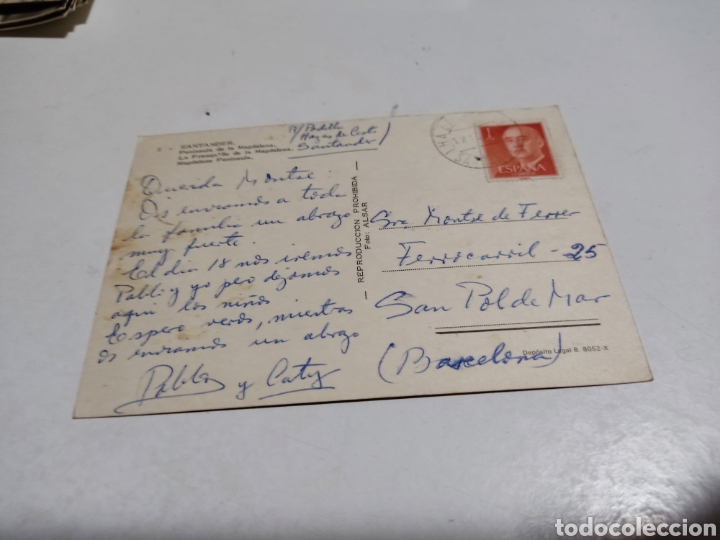 SANTANDER.
Península de la Magdalena.
La Presqu'île de la Magdalena.
Magdalena Peninsula.
Hazas de Cesto
Santander)
Querida Montse:
Os enviamos a toda
la familia un abrazo
muy fuerte.
El día 18 nos iremos
Pablo y yo pero dejamos
aquí los niños
Espero veros, mientras
os enviamos un abrazo
Pablo y Caty
REPRODUCCION PROHIBIDA
Foto: ALSAR
1
ESPAÑA
Sra Montse de Ferrer
Ferrocarril - 25
San Pol de Mar
(Barcelona)
Depósito Legal B. 8052-X
todocoleccion.net